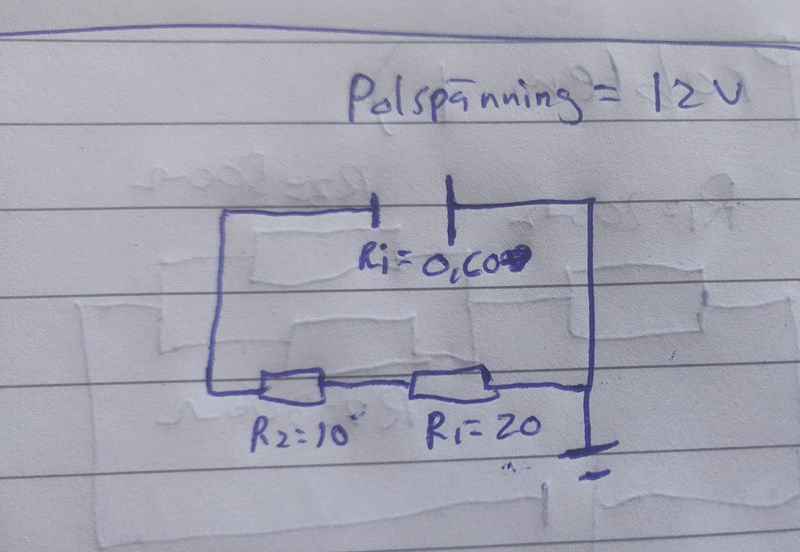 Polspänning = 12V
Ri = 0,60
R2 = 10
R1 = 20